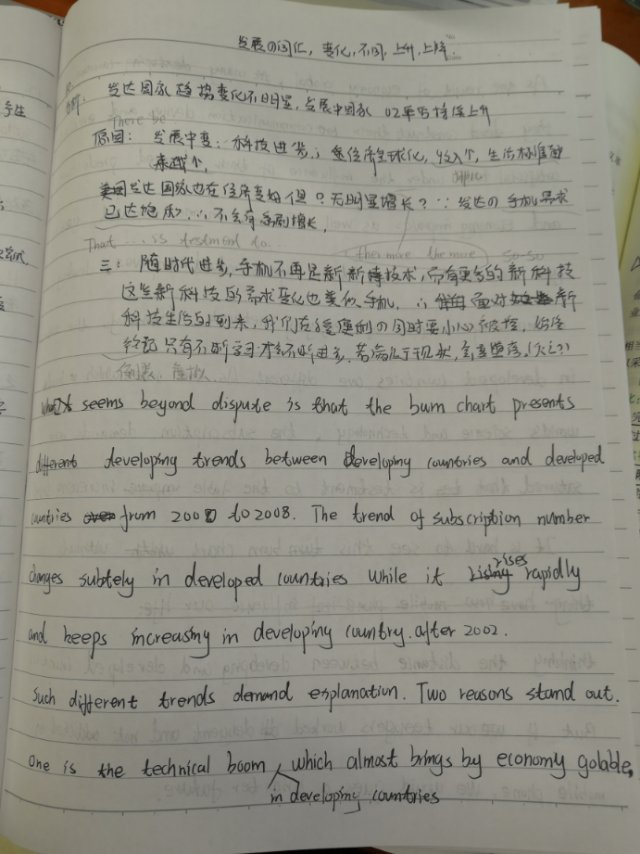 发展の词汇, 变化, 不同, 上升, 上降.
发达国家趋势变化不明显, 发展中国家 02年后持续上升
There be
原因: 发展中变: 科技进步, ∴ 经济全球化, 收入个, 生活标准
来越个.
发达国家也在经济变 但? 无明显增长? ∵ 发达の手机需求
已达饱和, ∴ 不会有急剧增长.
That ... is testment to...
the more the more so-so
三: 随时代进步, 手机不再是新技术, 而有更多的新科技
这些新科技的需求变化也类似手机, ∴ 面对新
科技生活的到来, 我们在 的同时要小心被 , 始终
只有不断学习才能不断进步, 若 于现状, 会
What seems beyond dispute is that the burn chart presents
different developing trends between developing countries and developed
countries from 2000 to 2008. The trend of subscription number
changes subtely in developed countries while it rises rapidly
and keeps increasing in developing country. after 2002.
Such different trends demand explanation. Two reasons stand out.
One is the technical boom, which almost brings by economy golable,
in developing countries